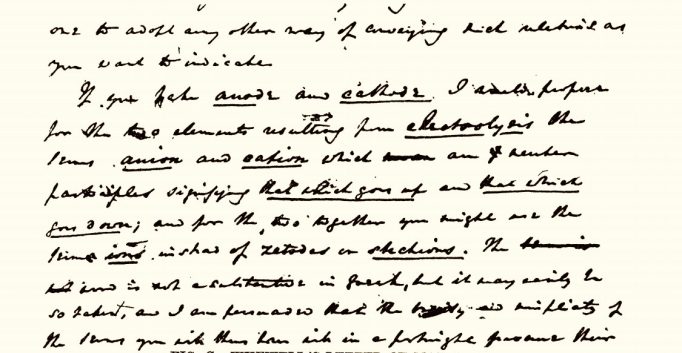 one to adopt any other way of conveying such relations as
you want to indicate
If you take anode and cathode I would propose
for the two elements resulting from electrolysis the
terms anion and cation which are neuter
participles signifying that which goes up and that which
goes down; and for the two together you might use the
term ions instead of zetodes or stechions. The
word is not a substantive in Greek, but it may easily be
so taken, and I am persuaded that the brevity and simplicity of
the terms you will thus have will in a fortnight procure their